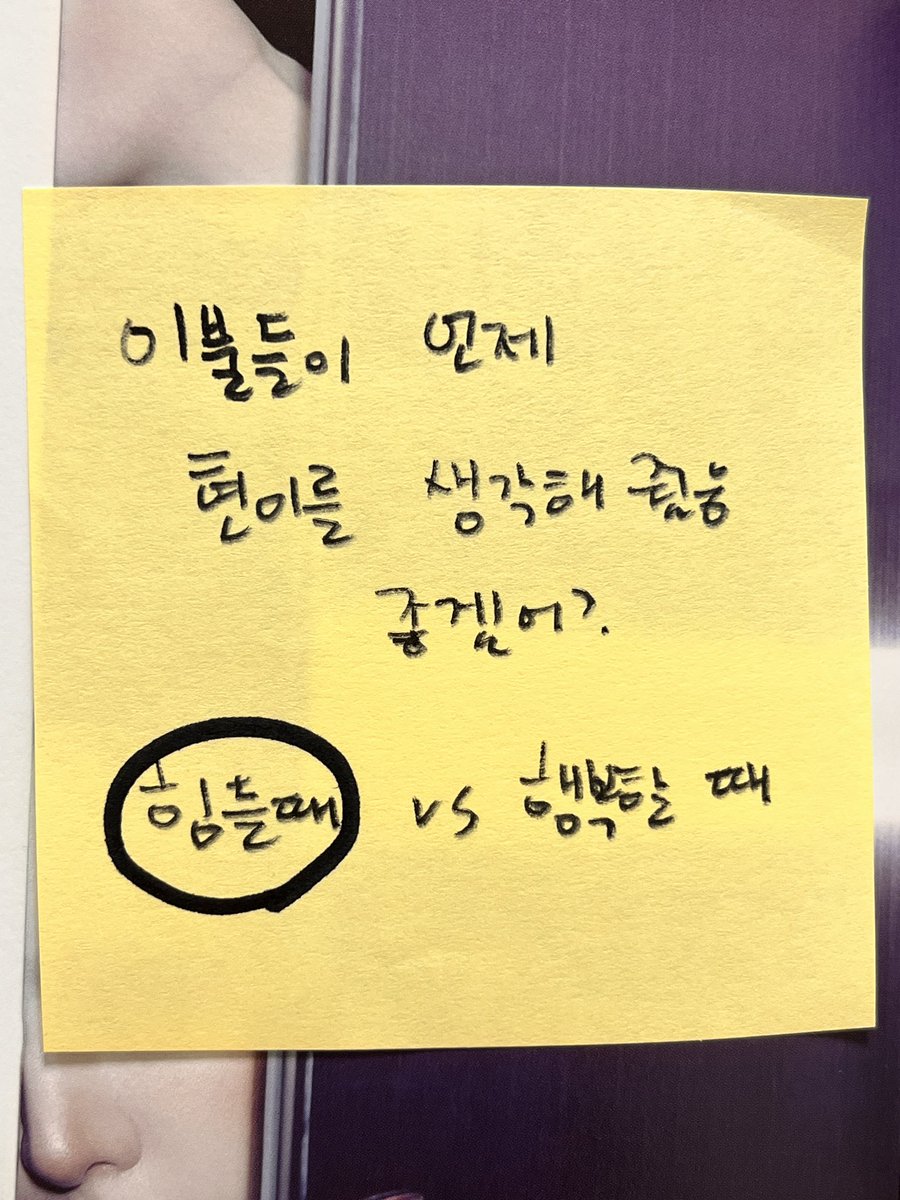 이불들이 언제
편이를 생각해 줬음
좋겠어?
힘들때 vs 행복할 때